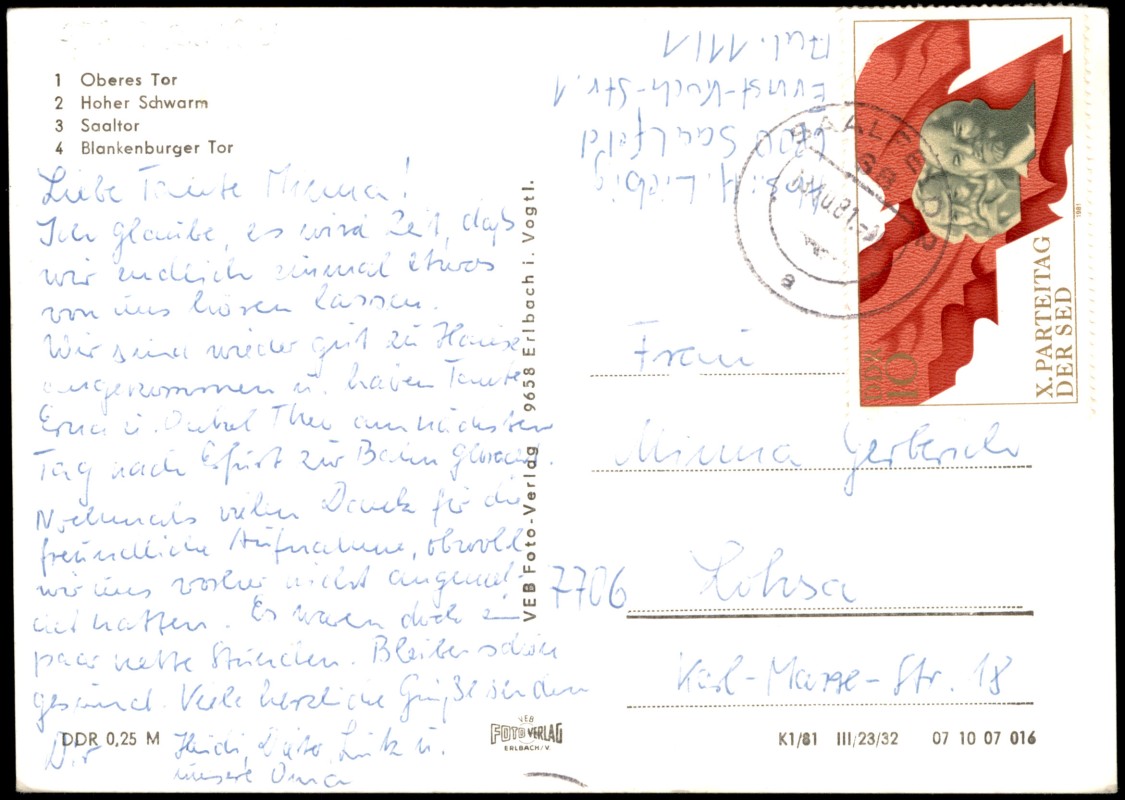 1 Oberes Tor
2 Hoher Schwarm
3 Saaltor
4 Blankenburger Tor
Liebe Tante Minna!
Ich glaube, es wird Zeit, daß
wir endlich einmal etwas
von uns hören lassen.
Wir sind wieder gut zu Hause
angekommen u. haben Tante
Erna u. Onkel Theo am nächsten
Tag nach Erfurt zur Bahn gebracht.
Nochmals vielen Dank für die
freundliche Aufnahme, obwohl
wir uns vorher nicht angemel-
det hatten. Es waren doch ein
paar nette Stunden. Bleibe schön
gesund. Viele herzliche Grüße senden
Dir Heidi, Dieter, Lutz u.
unsere Oma
DDR 0,25 M
VEB Foto-Verlag 9658 Erlbach i. Vogtl.
VEB
FOTO VERLAG
ERLBACH/V.
Abs.: H. Liebig
6800 Saalfeld
Ernst-Koch-Str. 1
Auf. 11/1
SAALFELD
81
a
X. PARTEITAG
DER SED
DDR
10
1981
Frau
Minna Gerbersch
7706 Lohsa
Karl-Marx-Str. 18
K1/81 III/23/32 07 10 07 016